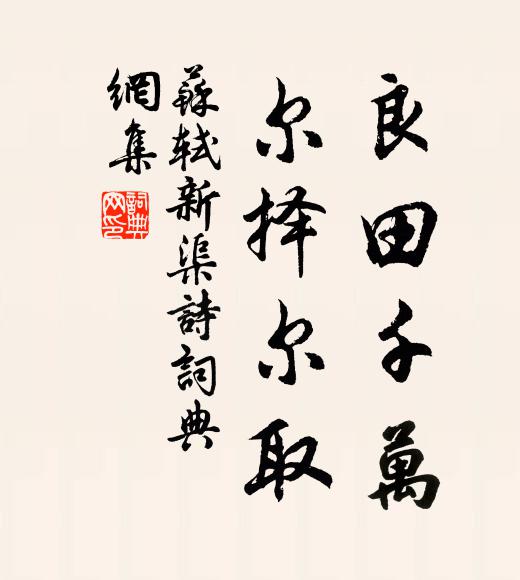 良田千萬
尔择尔取
蘇軾新渠詩詞典
網集
詞典
网印